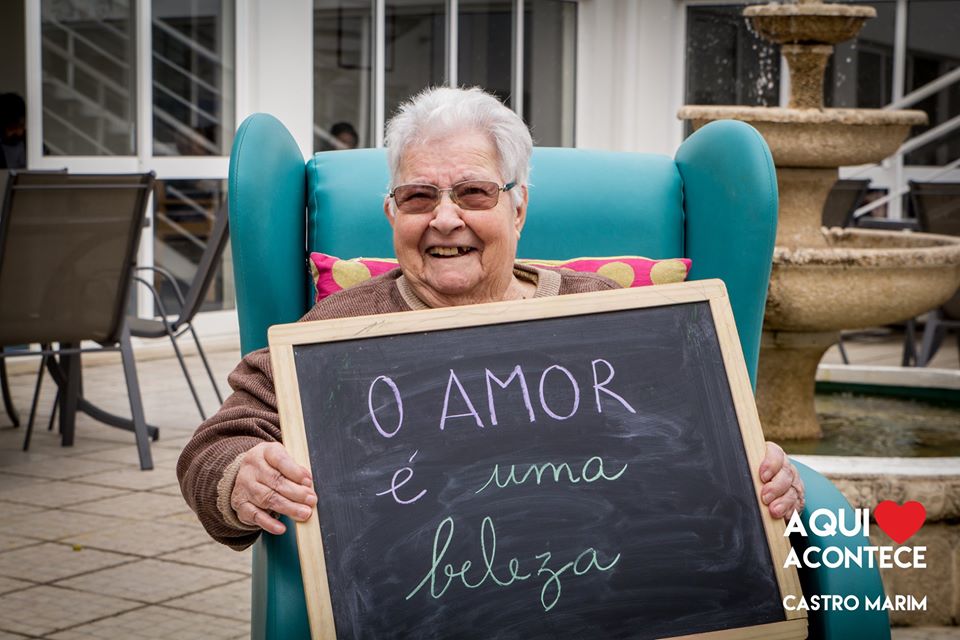 O AMOR
é uma
beleza
AQUI ❤
ACONTECE
CASTRO MARIM